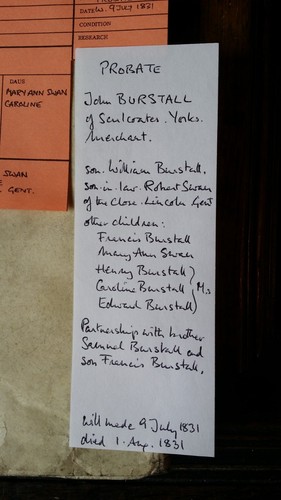 DATED. 9 JULY 1831
CONDITION
RESEARCH
DATE
MARY ANN SWAN
CAROLINE
SWAN
GENT.
PROBATE
John BURSTALL
of Sculcoates. Yorks.
Merchant.
son. William Burstall.
son-in-law. Robert Swan
of the Close. Lincoln Gent
other children:
Francis Burstall
Mary Ann Swan
Henry Burstall)
Caroline Burstall (M.s
Edward Burstall)
Partnerships with brother
Samuel Burstall and
son Francis Burstall.
Will made 9 July 1831
died 1. Aug. 1831